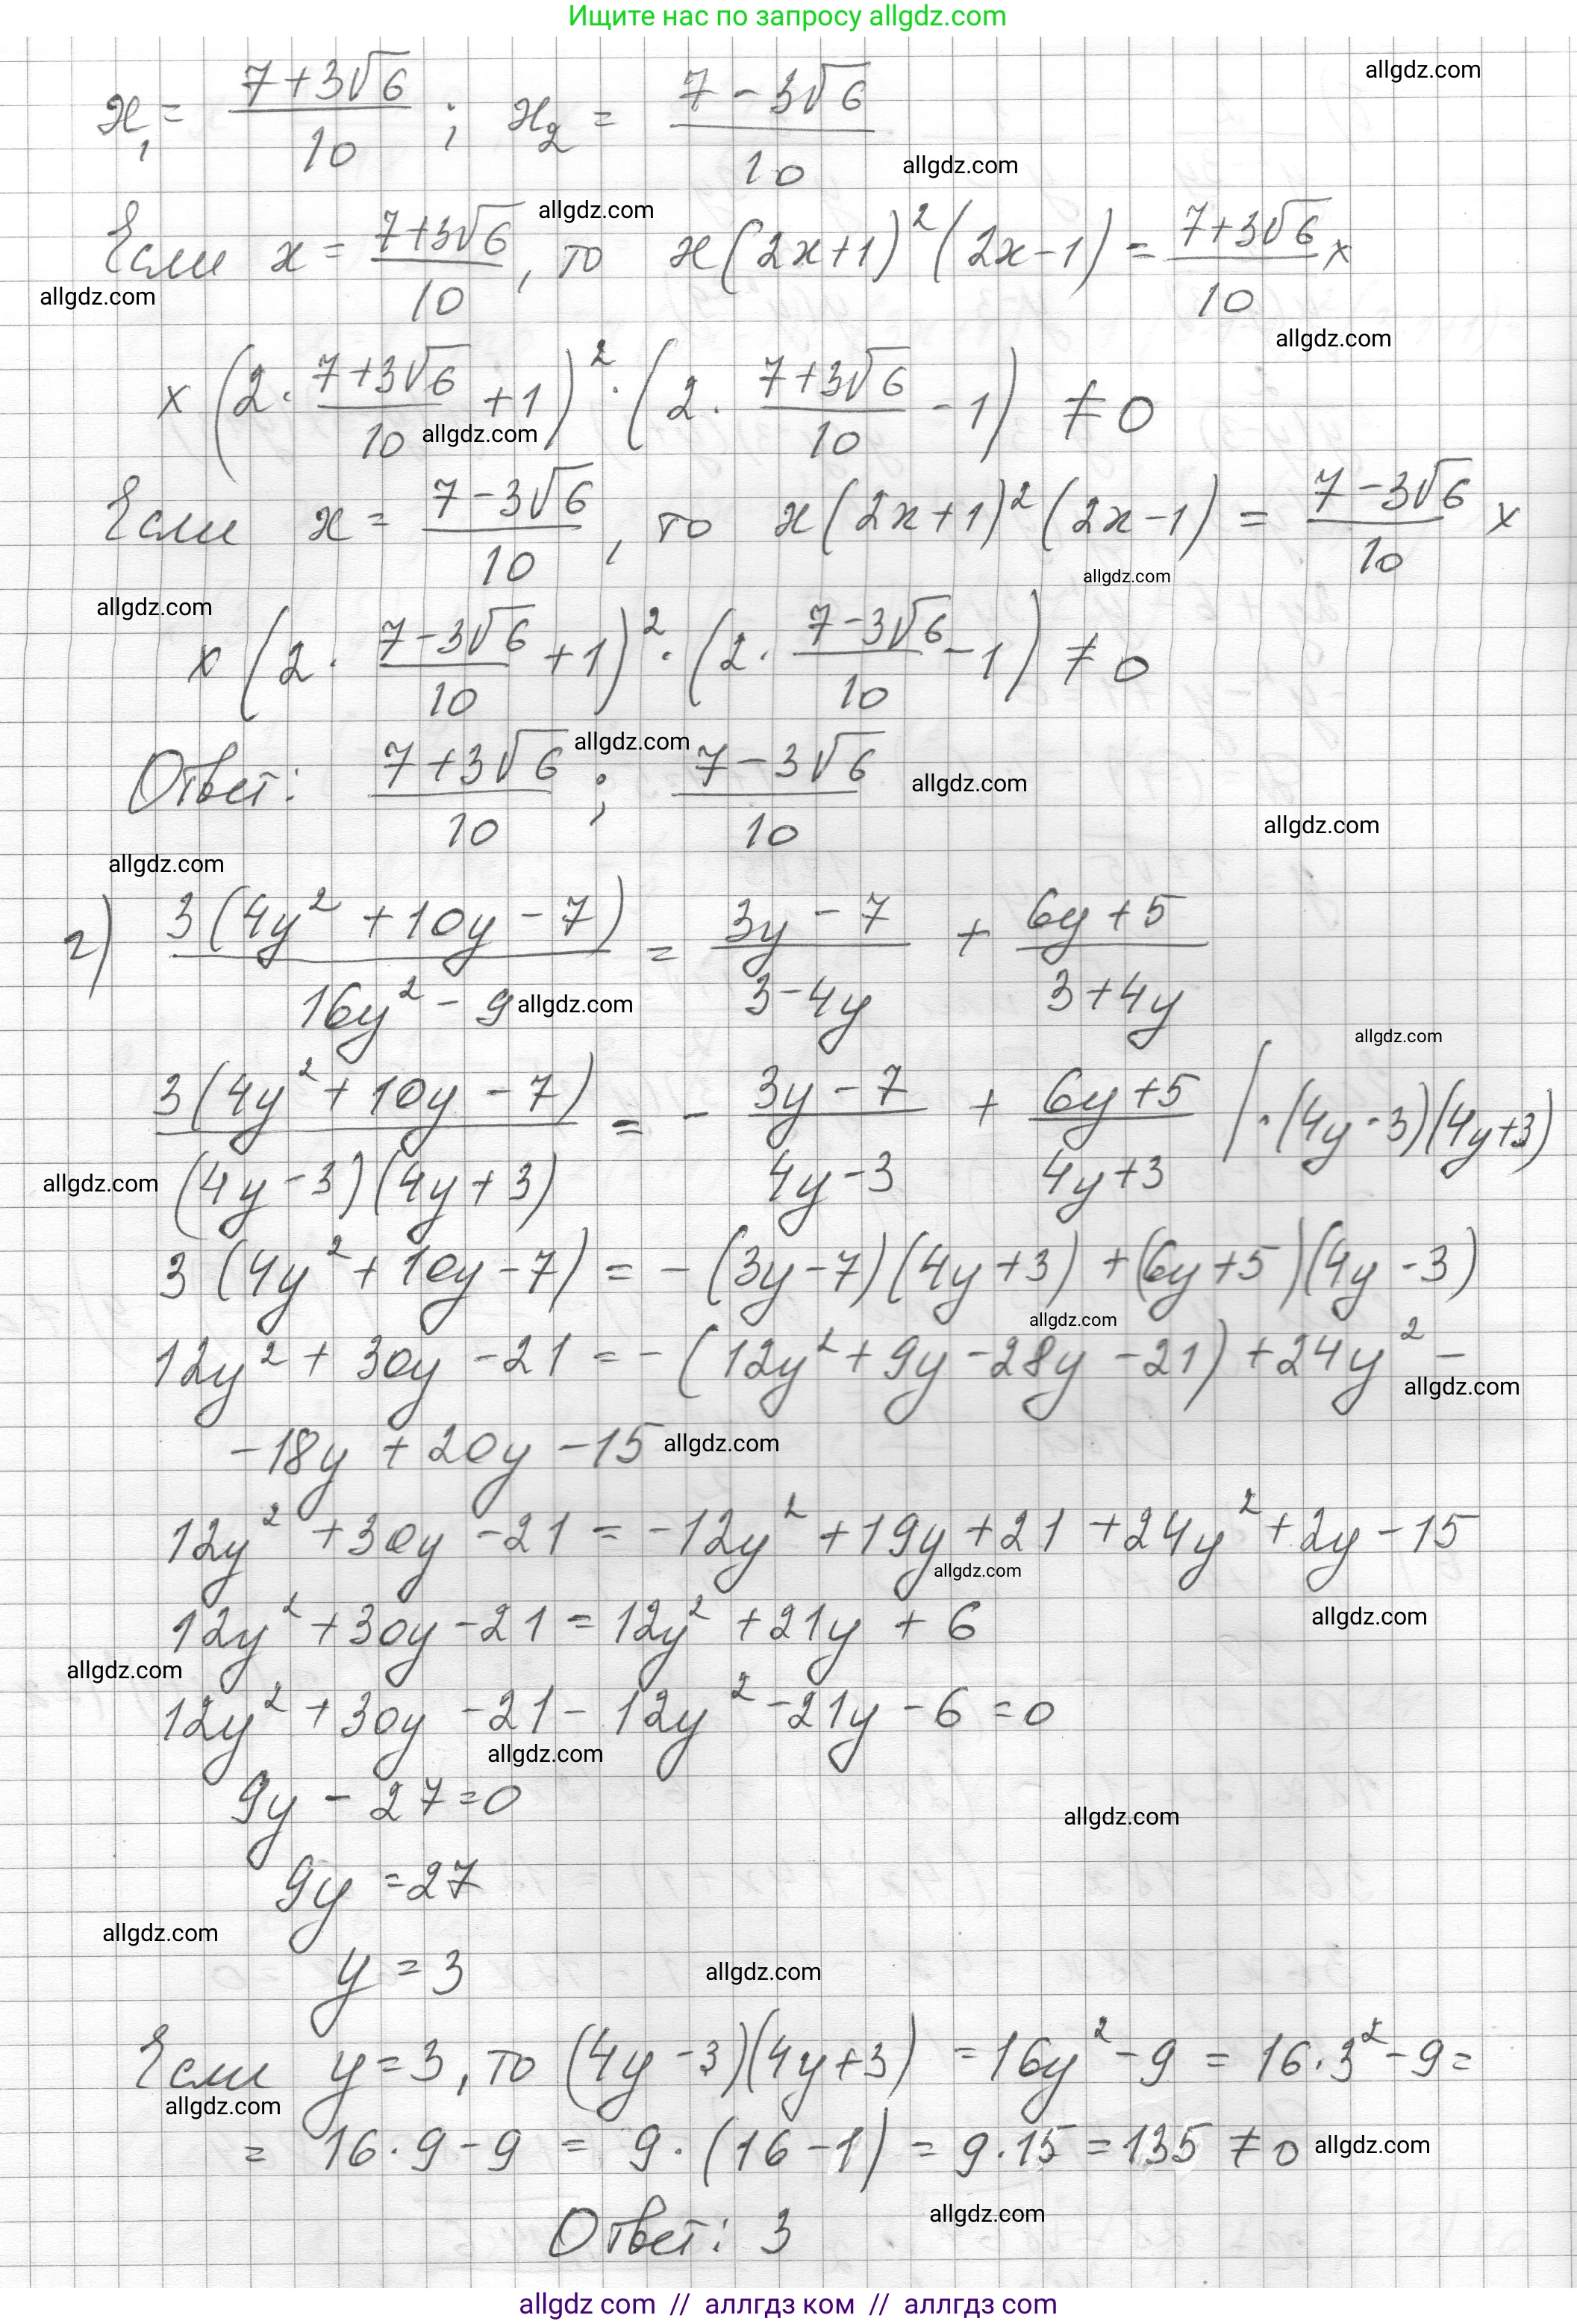 Ищите нас по запросу allgdz.com
allgdz.com
x₁ = (7+3√6)/10 ; x₂ = (7-3√6)/10
allgdz.com
allgdz.com
Если x = (7+3√6)/10, то x(2x+1)²(2x-1) = (7+3√6)/10 ×
allgdz.com
allgdz.com
× (2· (7+3√6)/10 +1)² · (2· (7+3√6)/10 -1) ≠ 0
allgdz.com
Если x = (7-3√6)/10, то x(2x+1)²(2x-1) = (7-3√6)/10 ×
allgdz.com
allgdz.com
× (2· (7-3√6)/10 +1)² · (2· (7-3√6)/10 -1) ≠ 0
allgdz.com
Ответ: (7+3√6)/10 ; (7-3√6)/10
allgdz.com
allgdz.com
allgdz.com
г) 3(4y²+10y-7)/(16y²-9) = (3y-7)/(3-4y) + (6y+5)/(3+4y)
allgdz.com
allgdz.com
3(4y²+10y-7)/((4y-3)(4y+3)) = - (3y-7)/(4y-3) + (6y+5)/(4y+3) | ·(4y-3)(4y+3)
allgdz.com
3(4y²+10y-7) = -(3y-7)(4y+3)+(6y+5)(4y-3)
allgdz.com
12y²+30y-21 = -(12y²+9y-28y-21)+24y²-
allgdz.com
-18y+20y-15
allgdz.com
12y²+30y-21 = -12y²+19y+21+24y²+2y-15
allgdz.com
12y²+30y-21 = 12y²+21y+6
allgdz.com
allgdz.com
12y²+30y-21-12y²-21y-6 = 0
allgdz.com
9y-27=0
allgdz.com
9y=27
allgdz.com
y=3
allgdz.com
Если y=3, то (4y-3)(4y+3) = 16y²-9 = 16·3²-9 =
allgdz.com
= 16·9-9 = 9·(16-1) = 9·15 = 135 ≠ 0
allgdz.com
allgdz.com
Ответ: 3
allgdz com // аллгдз ком // аллгдз com